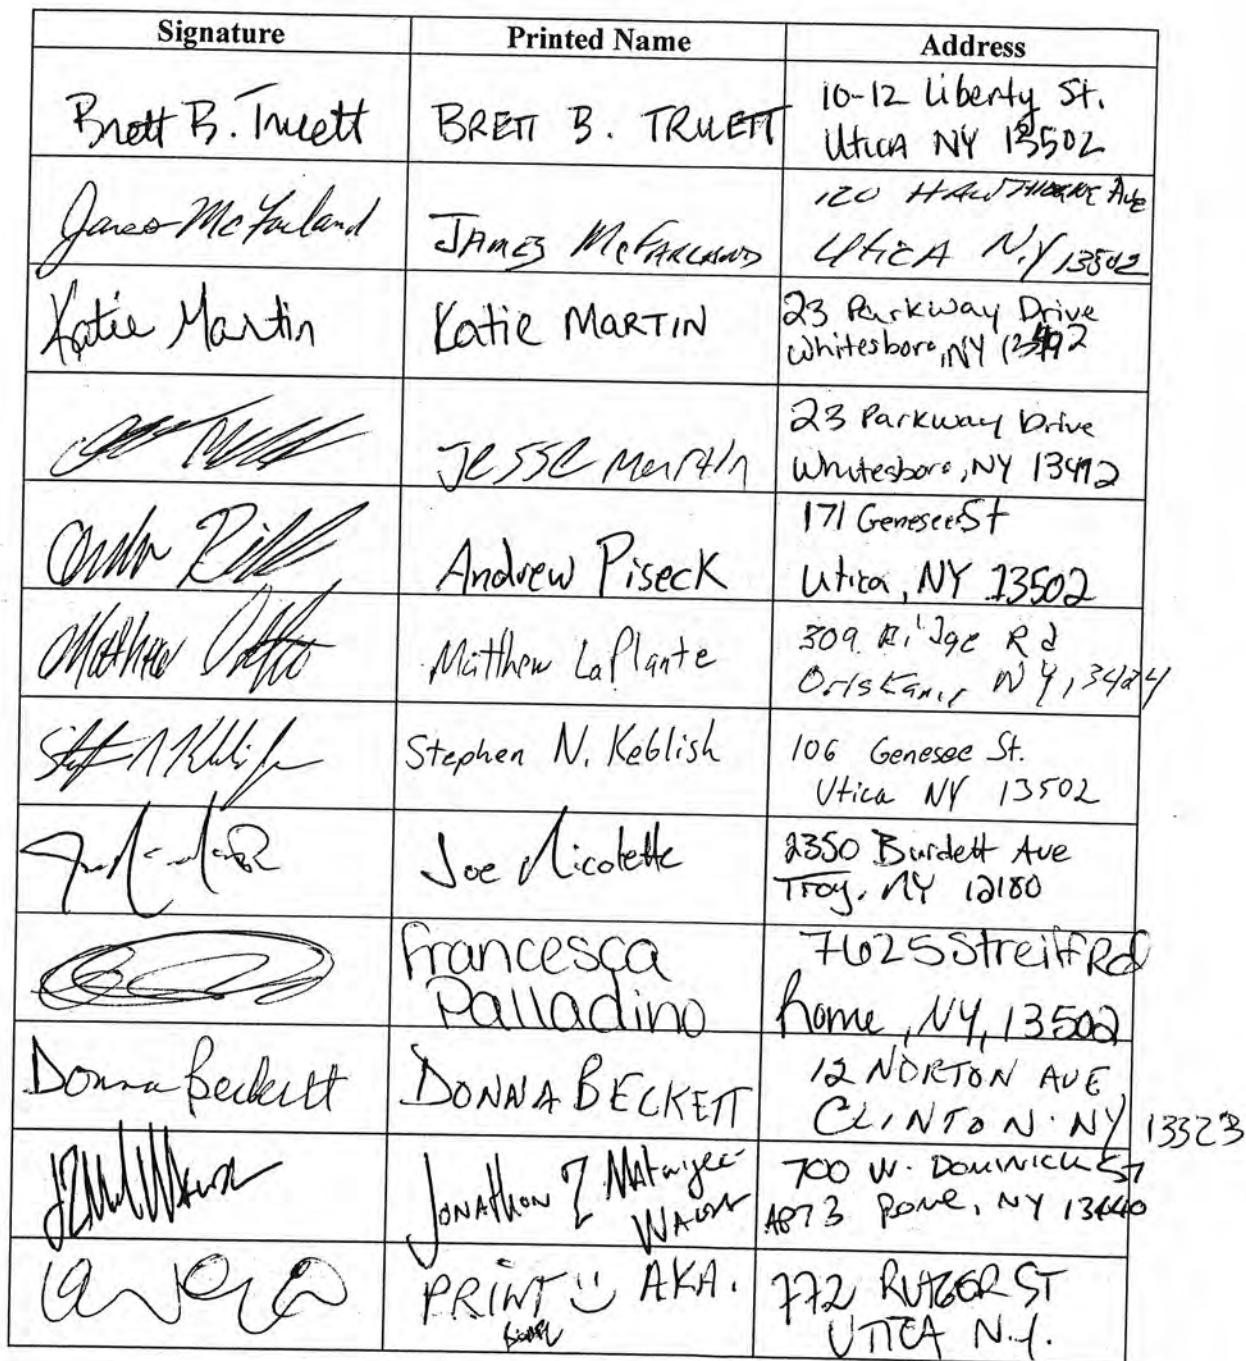 Signature Printed Name Address
Brett B. Truett BRETT B. TRUETT 10-12 Liberty St.
Utica NY 13502
James McFarland JAMES McFARLAND 120 HAWTHORNE Ave
Utica N.Y 13502
Katie Martin Katie MARTIN 23 Parkway Drive
Whitesboro, NY 13492
Jesse Martin 23 Parkway Drive
Whitesboro, NY 13492
Andrew Piseck 171 Genesee St
Utica, NY 13502
Matthew Matthew LaPlante 309 Ridge Rd
Oriskany NY, 13424
Stephen N. Keblish 106 Genesee St.
Utica NY 13502
Joe Nicolette 2350 Burdett Ave
Troy, NY 12180
Francesca
Palladino 7625 Streiff Rd
Rome, NY, 13502
Donna Beckett DONNA BECKETT 12 NORTON AVE
CLINTON NY 13323
Jonathon 700 W. DOMINICK ST
APT 3 Rome, NY 13440
PRINT AKA. 772 RUTGER ST
UTICA N.Y.